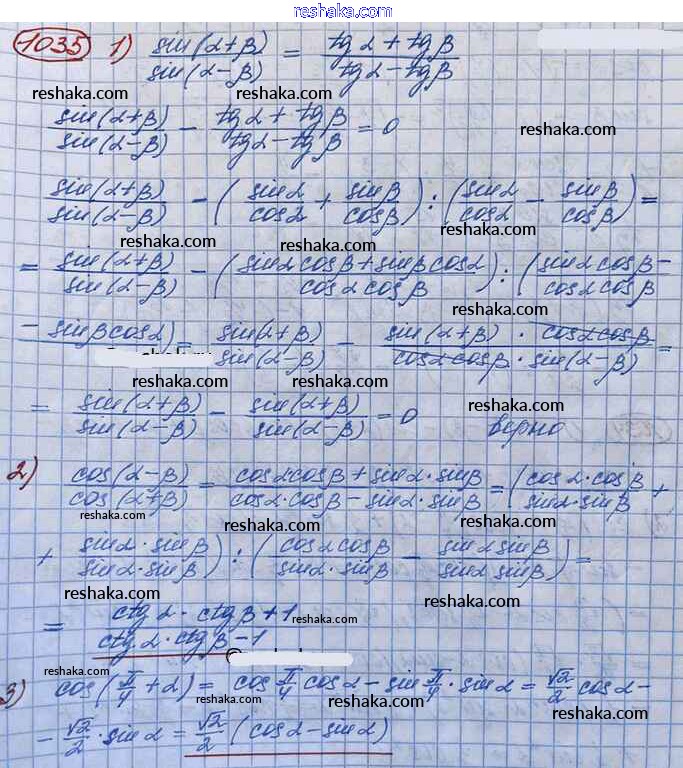 reshaka.com
1035 1) sin(α+β)/sin(α−β) = (tgα + tgβ)/(tgα − tgβ)
reshaka.com reshaka.com
sin(α+β)/sin(α−β) − (tgα + tgβ)/(tgα − tgβ) = 0
reshaka.com
reshaka.com
sin(α+β)/sin(α−β) − (sinα/cosα + sinβ/cosβ) : (sinα/cosα − sinβ/cosβ) =
reshaka.com reshaka.com
= sin(α+β)/sin(α−β) − ((sinα cosβ + sinβ cosα)/(cosα cosβ)) : (sinα cosβ −/cosα cosβ
reshaka.com reshaka.com
− sinβ cosα) = sin(α+β)/sin(α−β) − (sin(α+β) · cosα cosβ)/(cosα cosβ · sin(α−β)) =
reshaka.com reshaka.com
= sin(α+β)/sin(α−β) − sin(α+β)/sin(α−β) = 0 верно
reshaka.com
reshaka.com
2) cos(α−β)/cos(α+β) = (cosα cosβ + sinα · sinβ)/(cosα · cosβ − sinα · sinβ) = (cosα · cosβ/sinα · sinβ +
reshaka.com reshaka.com reshaka.com
+ sinα · sinβ/sinα · sinβ) : (cosα cosβ/sinα · sinβ − sinα sinβ/sinα sinβ) =
reshaka.com reshaka.com
= (ctgα · ctgβ + 1)/(ctgα · ctgβ − 1)
reshaka.com
reshaka.com
3) cos(π/4 + α) = cos π/4 cosα − sin π/4 · sinα = √2/2 cosα −
reshaka.com reshaka.com
− √2/2 · sinα = √2/2 (cosα − sinα)
reshaka.com